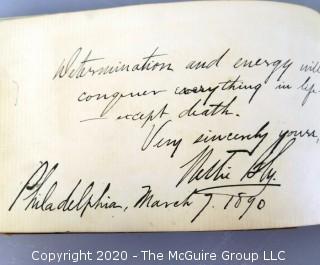 Determination and energy will
conquer everything in life
— except death.
Very sincerely yours,
Nellie Bly.
Philadelphia, March 7. 1890
Copyright © 2020 - The McGuire Group LLC